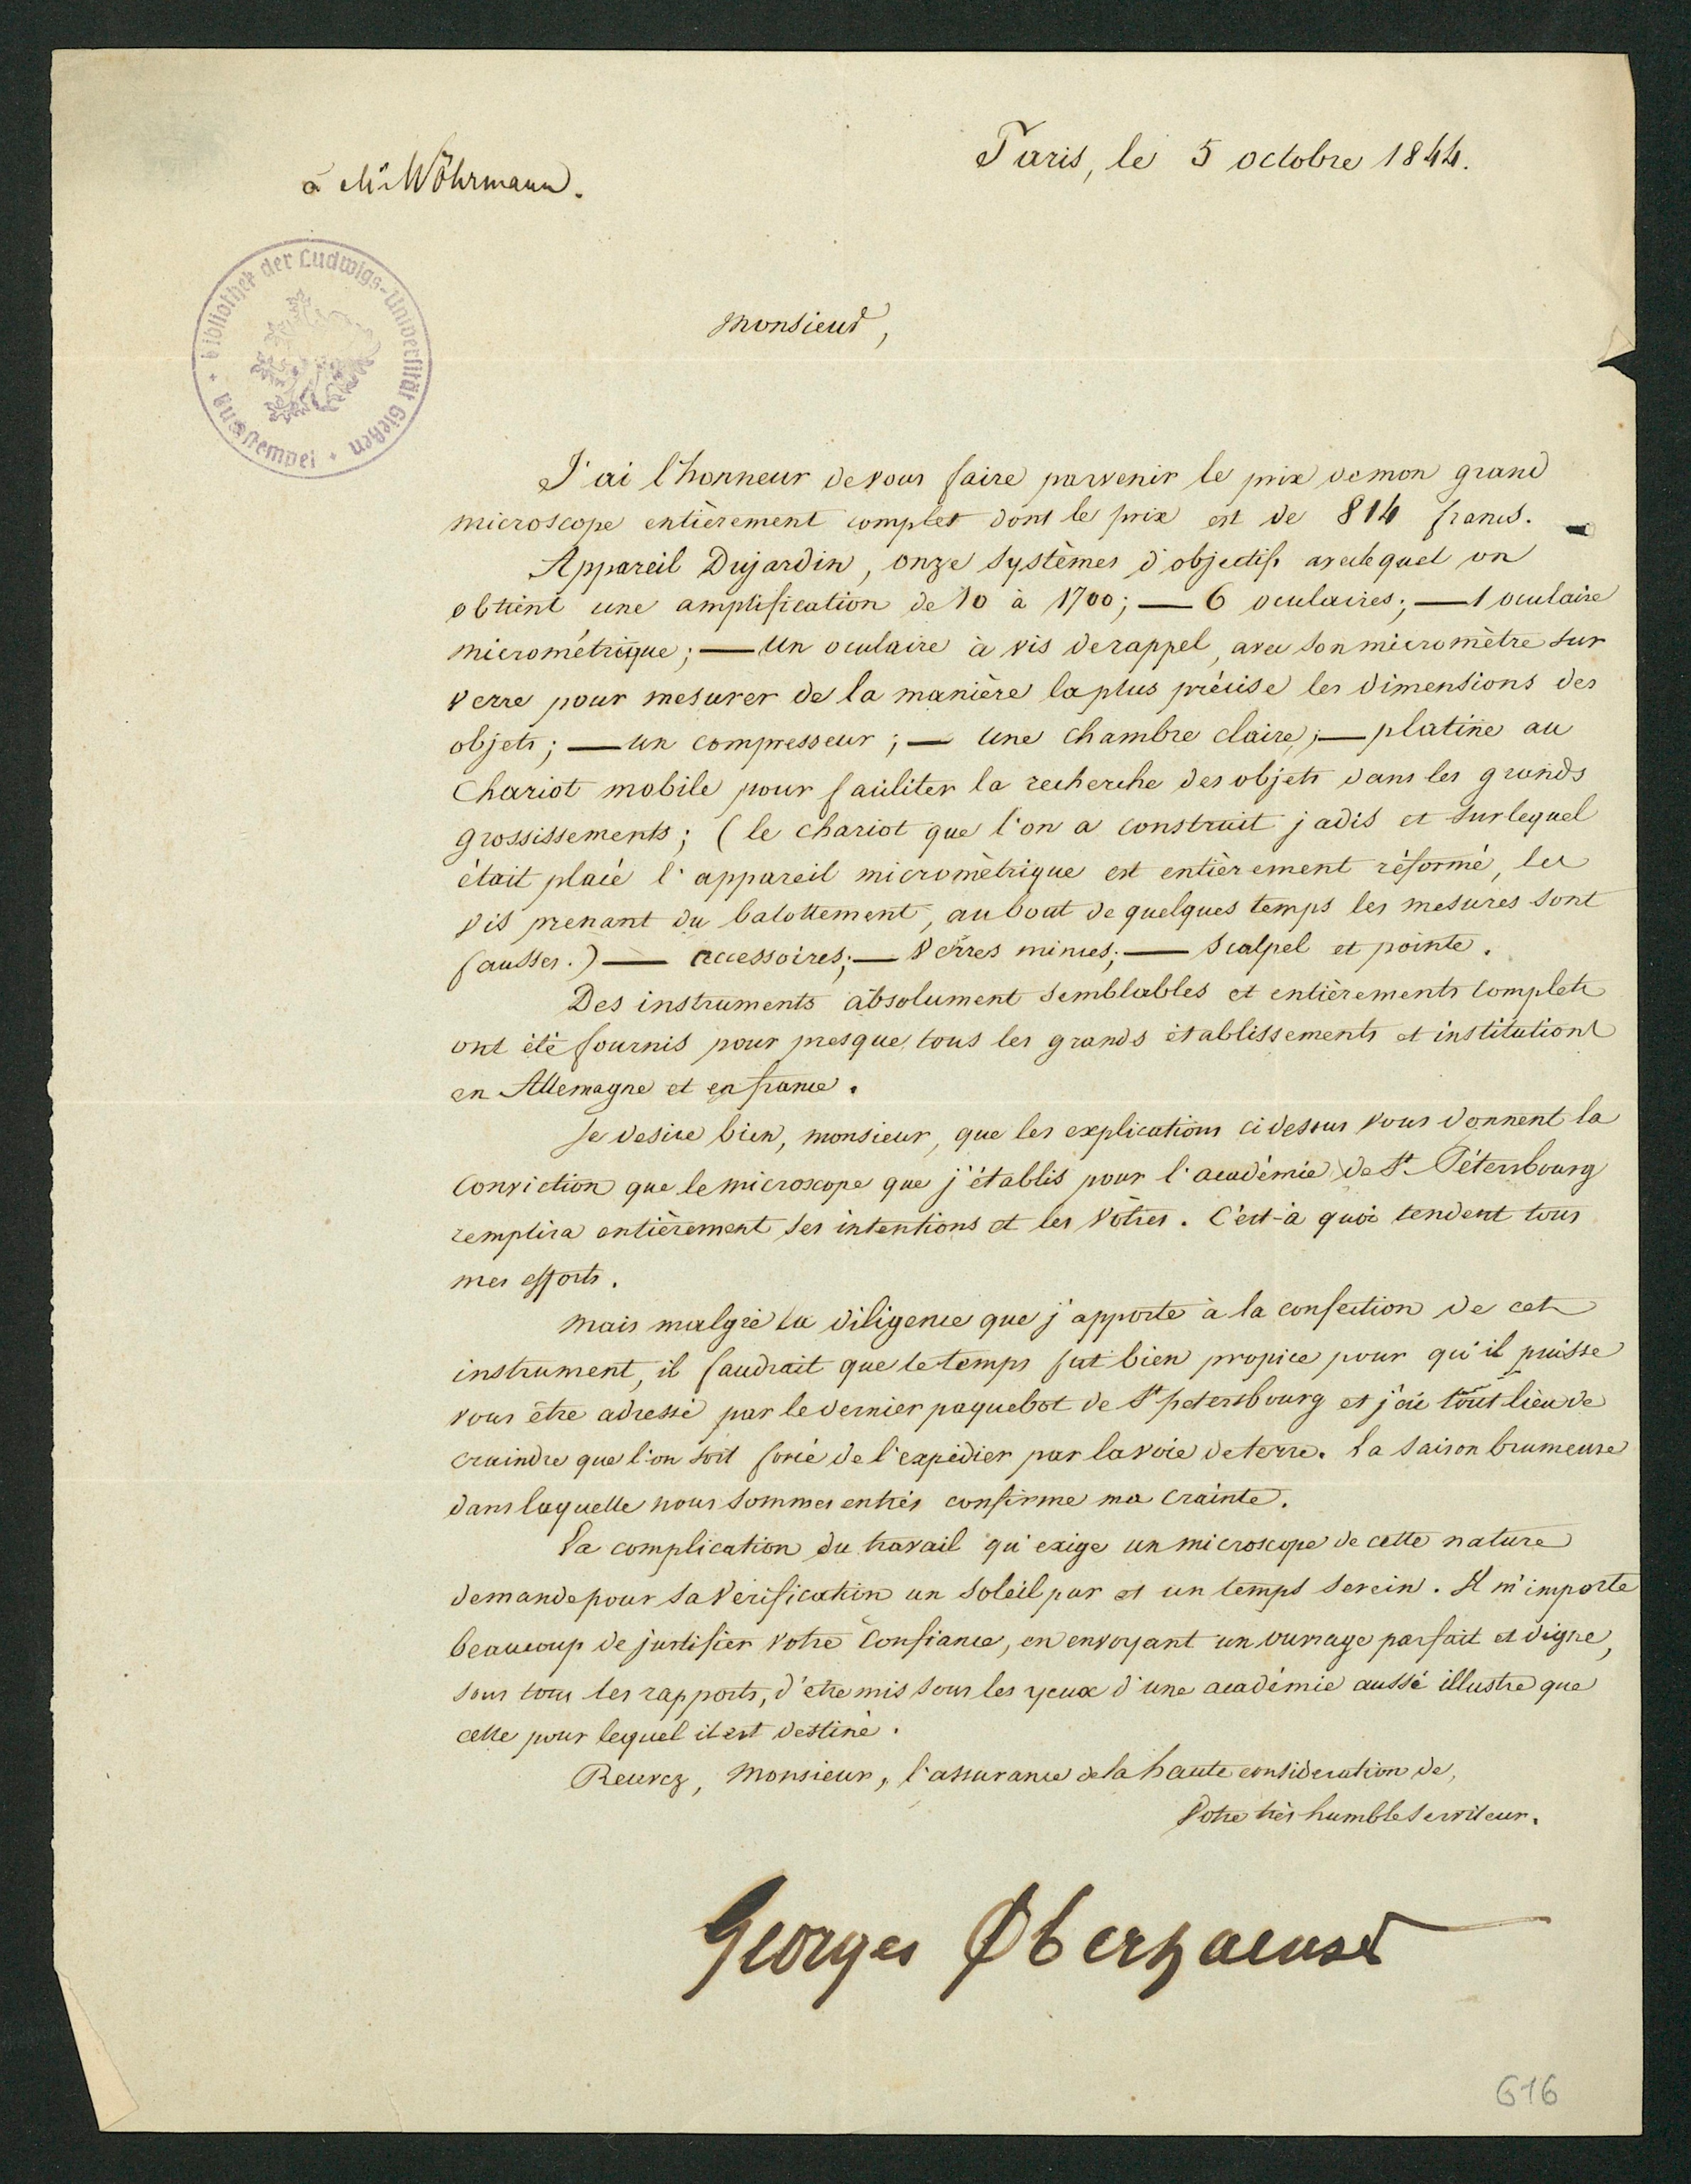 Paris, le 5 octobre 1844.
à Mr Wöhrmann.
Bibliothek der Ludwigs-Universität Gießen
monsieur,
J'ai l'honneur de vous faire parvenir le prix de mon grand
microscope entièrement complet dont le prix est de 814 francs.
Appareil Dujardin, onze systèmes d'objectifs avec lequel on
obtient une amplification de 10 à 1700; — 6 oculaires; — 1 oculaire
micrométrique; — Un oculaire à vis de rappel, avec son micromètre sur
verre pour mesurer de la manière la plus précise les dimensions des
objets; — un compresseur; — Une chambre claire; — platine au
Chariot mobile pour faciliter la recherche des objets dans les grands
grossissements; (le chariot que l'on a construit jadis et sur lequel
était placé l'appareil micromètrique est entièrement réformé, les
vis prenant du balottement, au bout de quelques temps les mesures sont
fausses.) — accessoires; — Verres minces; — scalpel et pointe.
Des instruments absolument semblables et entièrements complets
ont été fournis pour presque tous les grands établissements et institutions
en Allemagne et en france.
Je desire bien, monsieur, que les explications ci dessus vous donnent la
conviction que le microscope que j'établis pour l'académie de St. Pétersbourg
remplira entièrement ses intentions et les Vôtres. C'est-à quoi tendent tous
mes efforts.
Mais malgré la diligence que j'apporte à la confection de cet
instrument, il faudrait que le temps fut bien propice pour qu'il puisse
vous être adressé par le dernier paquebot de St petersbourg et j'ai tout lieu de
craindre que l'on soit forcé de l'expédier par la voie de terre. La saison brumeuse
dans laquelle nous sommes entrés confirme ma crainte.
La complication du travail qu'exige un microscope de cette nature
demande pour sa vérification un soleil pur et un temps serein. Il m'importe
beaucoup de justifier votre Confiance, en envoyant un ouvrage parfait et digne,
sous tous les rapports, d'etre mis sous les yeux d'une académie aussi illustre que
celle pour lequel il est destiné.
Recevez, Monsieur, l'assurance de la haute consideration de,
Votre très humble serviteur.
Georges Oberhaeuser
616